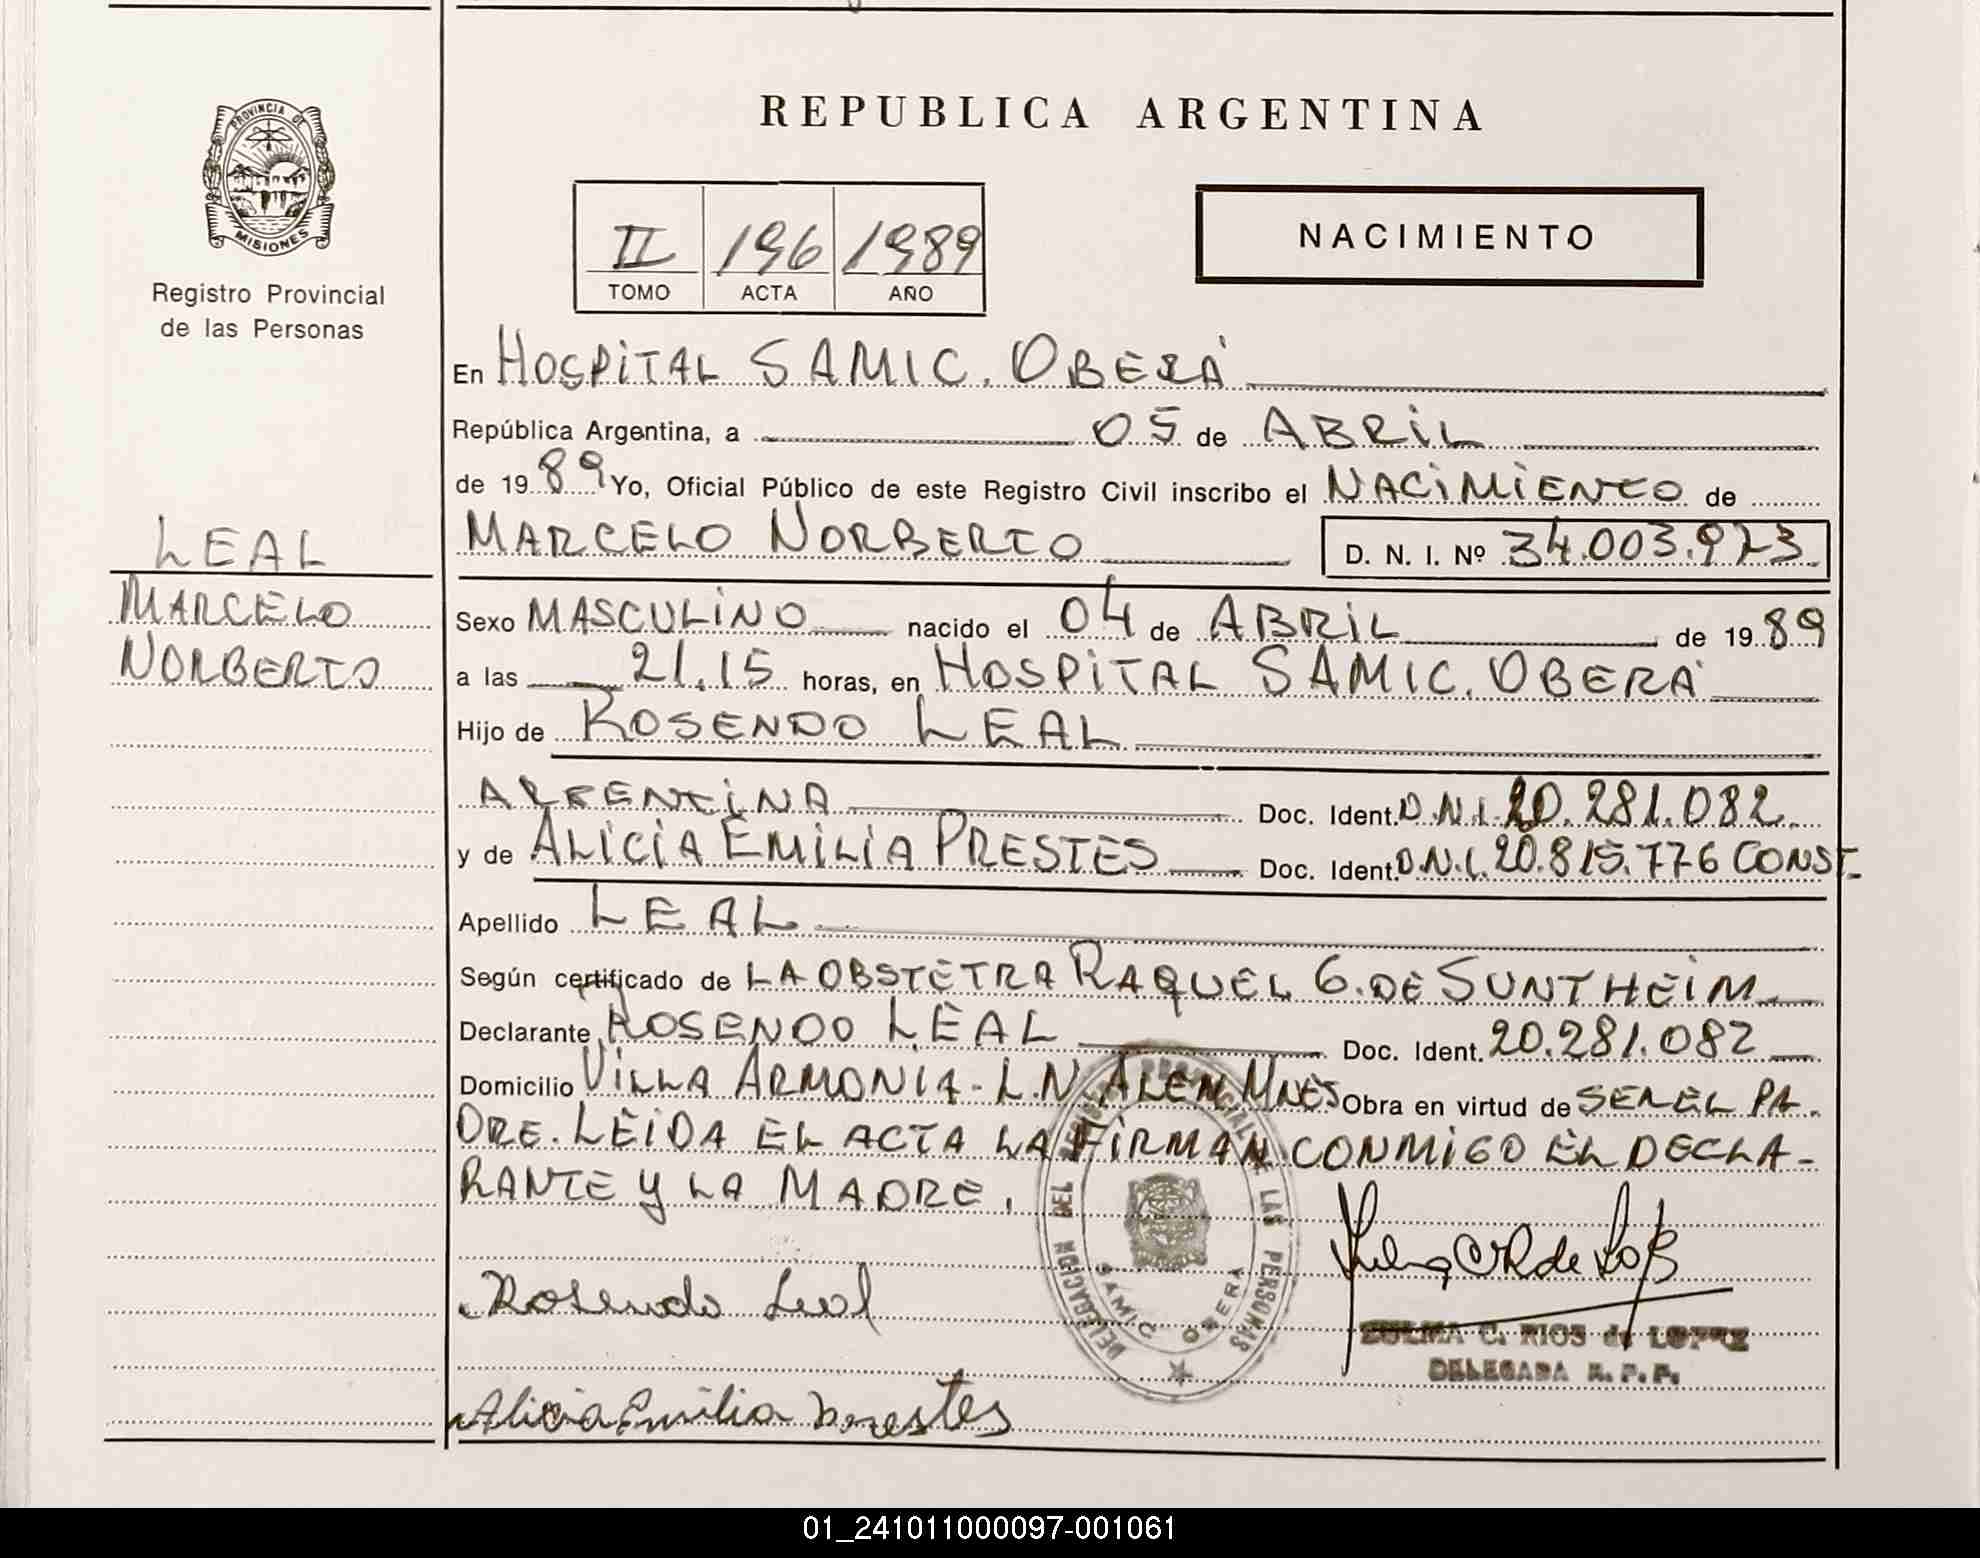 REPUBLICA ARGENTINA
PROVINCIA DE
MISIONES
Registro Provincial
de las Personas
II 196 1989
TOMO ACTA AÑO
NACIMIENTO
En HOSPITAL SAMIC. OBERÁ
República Argentina, a 05 de ABRIL
de 1989 Yo, Oficial Público de este Registro Civil inscribo el NACIMIENTO de
MARCELO NORBERTO D. N. I. Nº 34.003.973
LEAL
MARCELO
NORBERTO
Sexo MASCULINO nacido el 04 de ABRIL de 1989
a las 21.15 horas, en HOSPITAL SAMIC. OBERÁ
Hijo de ROSENDO LEAL
ARGENTINA Doc. Ident. D.N.I. 20.281.082.
y de ALICIA EMILIA PRESTES Doc. Ident. D.N.I. 20.815.776 CONST.
Apellido LEAL
Según certificado de LA OBSTETRA RAQUEL G. DE SUNTHEIM
Declarante ROSENDO LEAL Doc. Ident. 20.281.082
Domicilio VILLA ARMONIA - L.N. ALEM MNES Obra en virtud de SER EL PA.
DRE. LEIDA EL ACTA LA FIRMAN CONMIGO EL DECLA-
RANTE Y LA MADRE.
DELEGACION DEL REGISTRO PROVINCIAL DE LAS PERSONAS
SAMIC OBERA
Rosendo Leal
ZULMA C. RIOS de LOPEZ
DELEGADA R. P. P.
Alicia Emilia Prestes
01_241011000097-001061